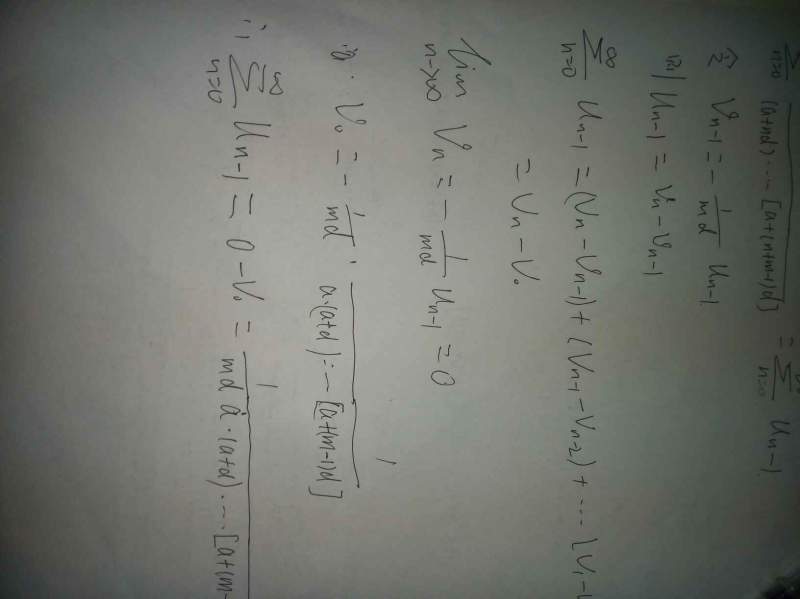 ∑_{n=0} 1/((a+nd)⋯[a+(n+m+1)d]) = ∑_{n=0}^∞ u_{n-1}
令 V_{n-1} = -1/md u_{n-1}
则 u_{n-1} = V_n - V_{n-1}
∑_{n=0}^∞ u_{n-1} = (V_n - V_{n-1}) + (V_{n-1} - V_{n-2}) + ⋯ (V_1 - V
= V_n - V_0
lim_{n→∞} V_n = -1/md u_{n-1} = 0
V_0 = -1/md · 1/(a·(a+d)⋯[a+(m-1)d])
∴ ∑_{n=0}^∞ u_{n-1} = 0 - V_0 = 1/(md a·(a+d)⋯[a+(m-